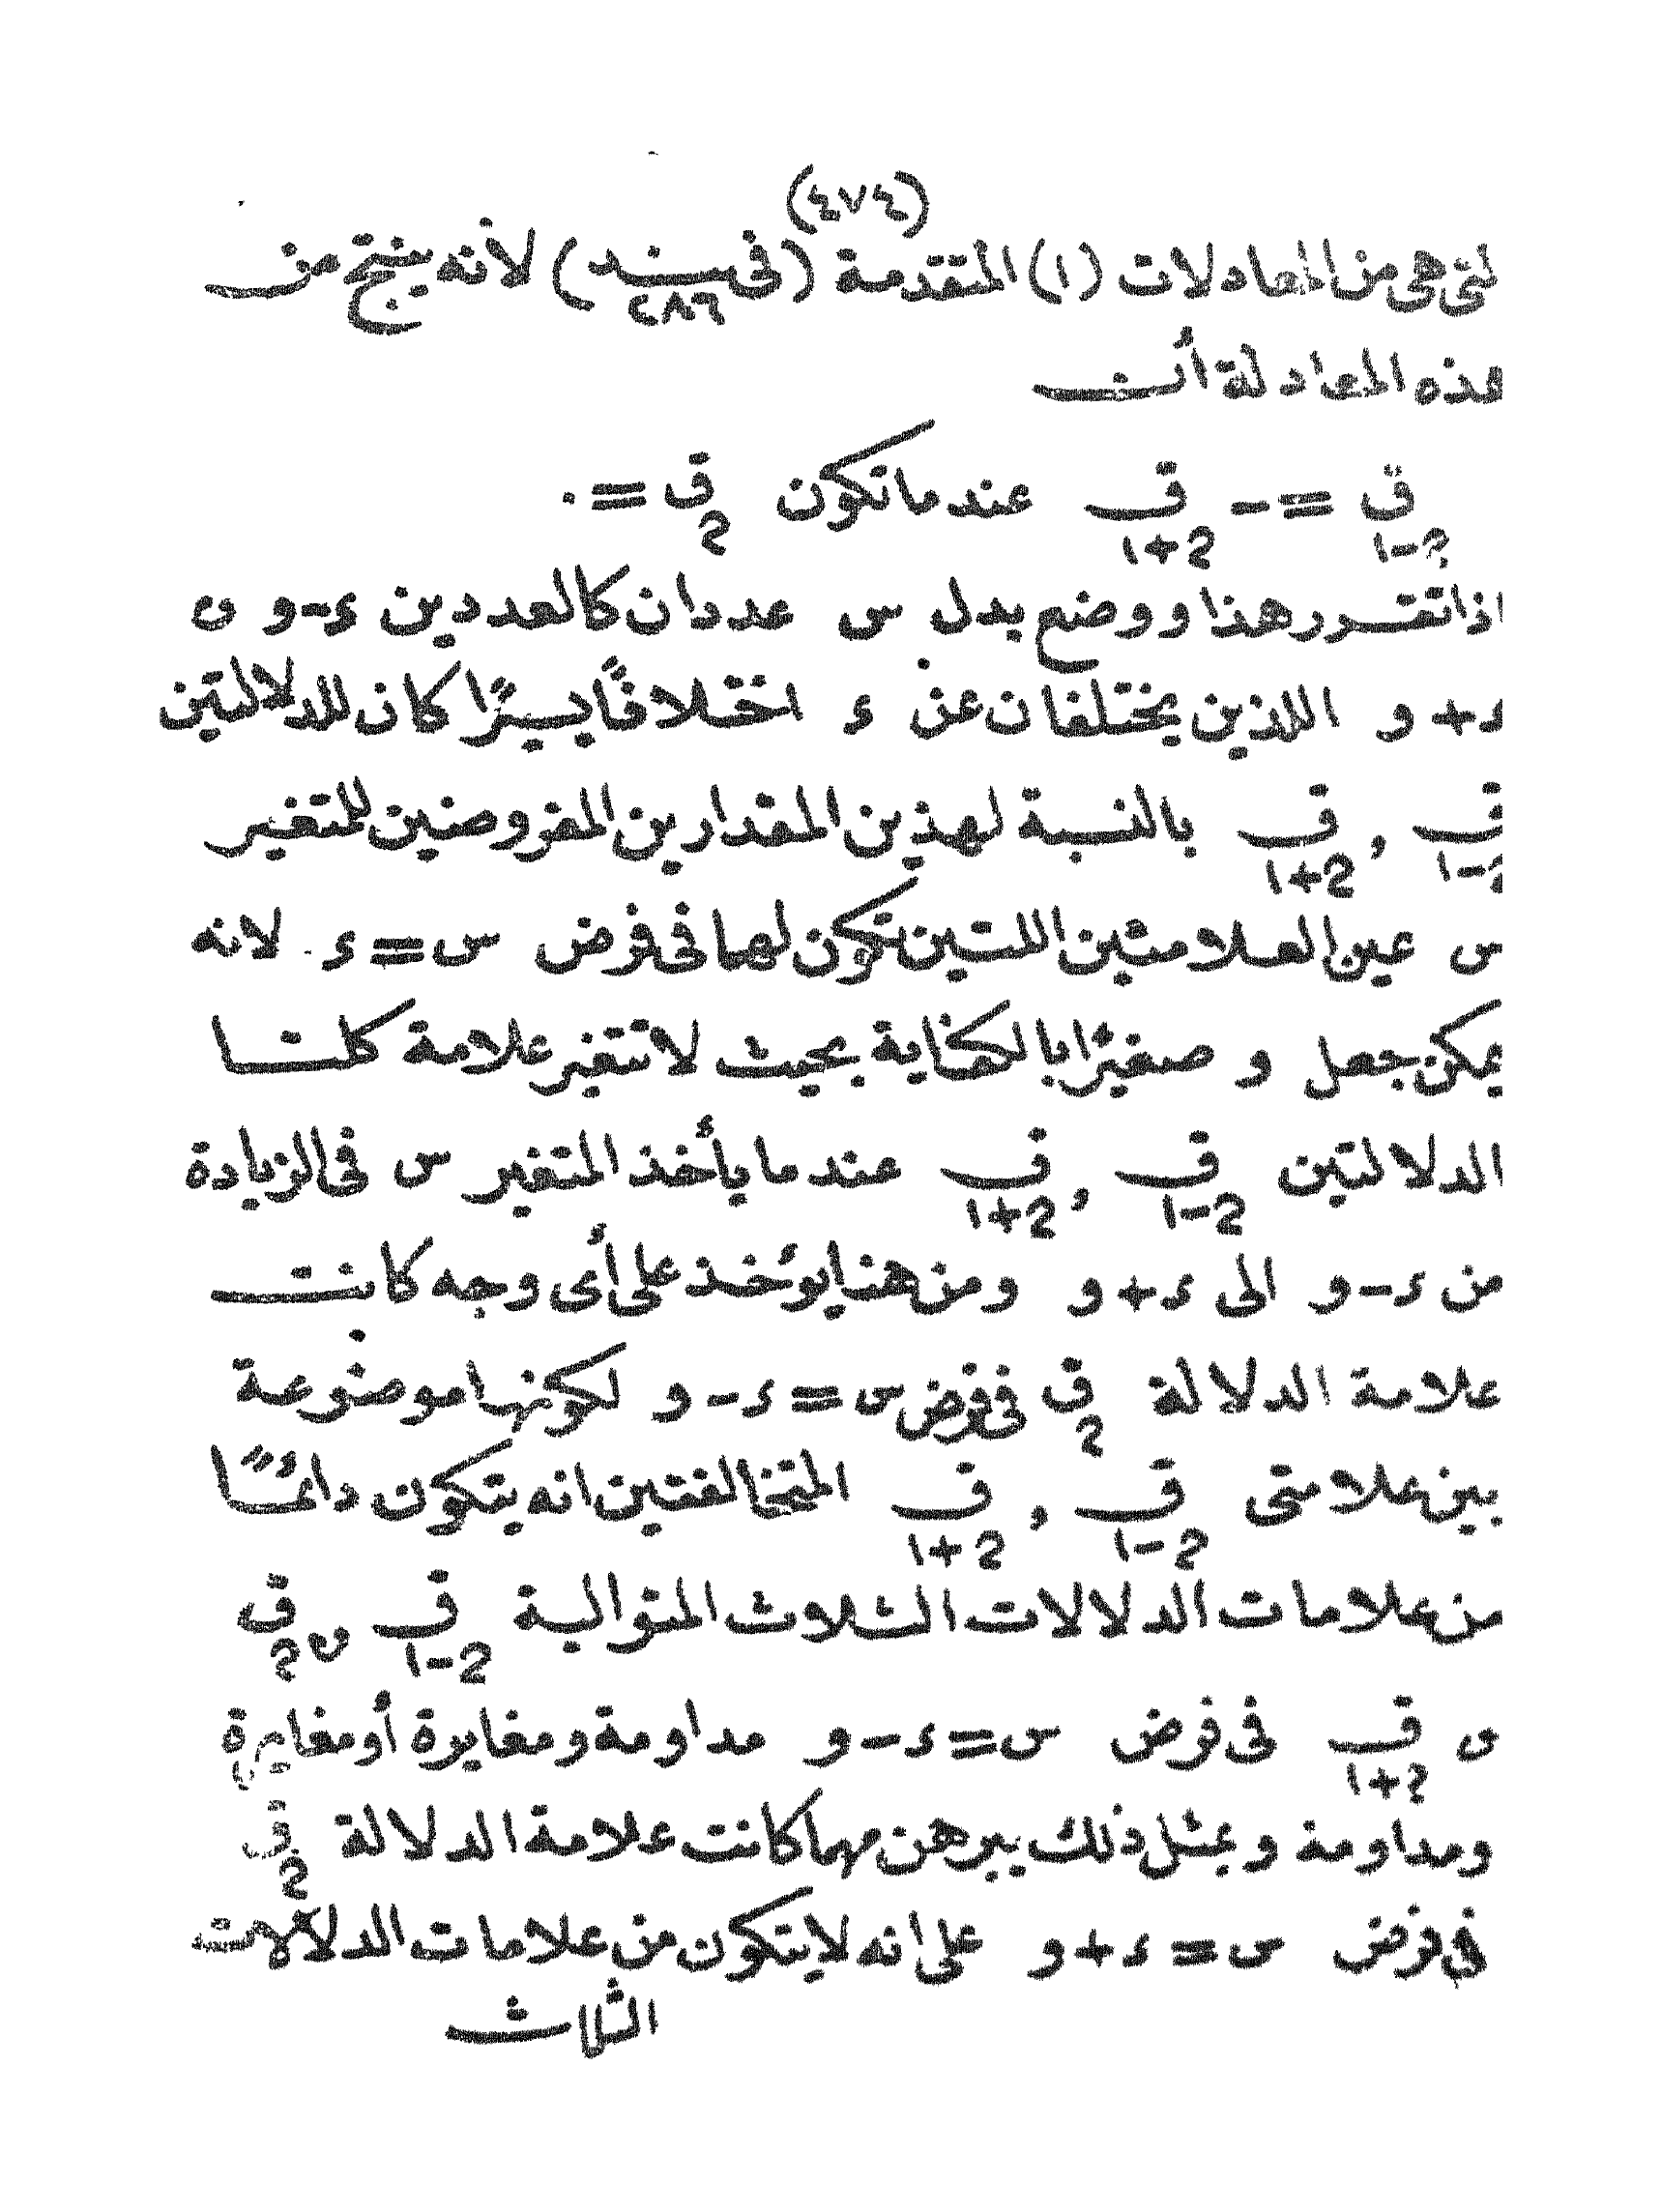 (٤٧٤)
لتى هى من المعادلات (١) المتقدمة (فى بند ٢٨٦) لأنه ينتج من
هذه المعادلة أن
ق2-١ = - ق2+١ عندما تكون ق2 = ٠
اذا تقرر هذا ووضع بدل س عددان كالعددين ء-و ں
ء+و اللذين يختلفان عن ء اختلافًا يسيرًا كان للدلالتين
ق2-١ , ق2+١ بالنسبة لهذين المقدارين المفروضين للمتغير
س عين العلامتين اللتين تكون لهما فى فرض س=ء لانه
يمكن جعل و صغيرًا بالكفاية بحيث لا تتغير علامة كلتا
الدلالتين ق2-١ , ق2+١ عندما يأخذ المتغير س فى الزيادة
من ء-و الى ء+و ومن هنا يؤخذ على أى وجه كانت
علامة الدلالة ق2 فى فرض س=ء-و لكونها موضوعة
بين علامتى ق2-١ , ق2+١ المتخالفتين انه يتكون دائمًا
من علامات الدلالات الثلاث المتوالية ق2-١ ں ق2
ں ق2+١ فى فرض س=ء-و مداومة ومغايرة أو مغايرة
ومداومة وبمثل ذلك يبرهن مهما كانت علامة الدلالة ق2
فى فرض س=ء+و على انه لا يتكون من علامات الدلالات
الثلاث